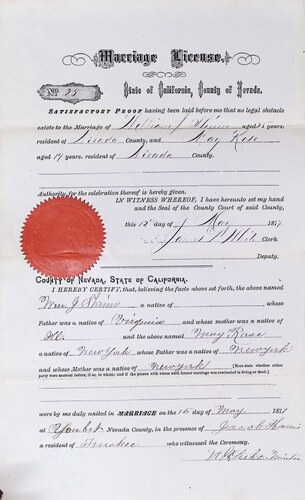 Marriage License.
No. 25
State of California, County of Nevada.
SATISFACTORY PROOF having been laid before me that no legal obstacle
exists to the Marriage of William J aged years,
resident of Nevada County, and May Rose
aged 19 years, resident of Nevada County.
Authority for the celebration thereof is hereby given.
IN WITNESS WHEREOF, I have hereunto set my hand
and the Seal of the County Court of said County,
this 15 day of May 187
James Clerk.
Deputy.
COUNTY OF NEVADA, STATE OF CALIFORNIA.
I HEREBY CERTIFY, that, believing the facts above set forth, the above named
Wm J. a native of whose
Father was a native of Virginia and whose mother was a native of
Ill. and the above named May Rose
a native of New York whose Father was a native of New York
and whose Mother was a native of New York
were by me duly united in MARRIAGE on the 15 day of May 187
at You bet Nevada County, in the presence of Jacob
a resident of Truckee who witnessed the Ceremony.
Minister